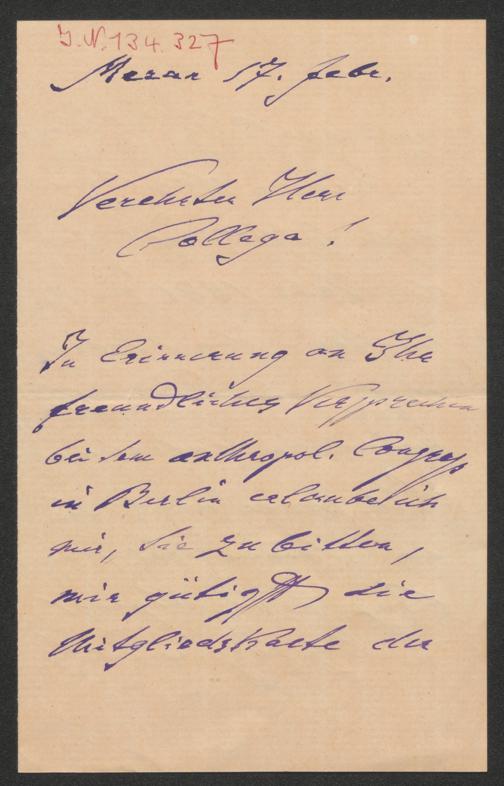 J.N. 134.327
Meran 17. Febr.
Verehrter Herr
College!
In Erinnerung an Ihr
freundliches Versprechen
bei dem anthropol. Congreß
in Berlin erlaube ich
mir, Sie zu bitten,
mir gütigst die
Mitgliedskarte der